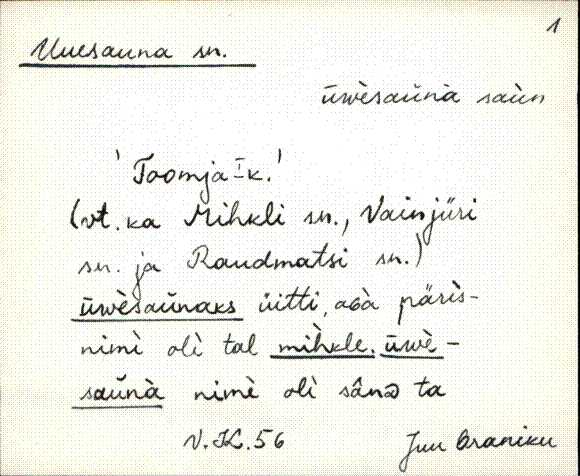 1
Uuesauna sn.
ūwèsaŭnà saùn
'Toomja I k.'
(vt. ka Mihkli sn., Vainjüri
sn. ja Raudmatsi sn.)
ūwèsaŭnaks üitti, aɢà päris-
nimì olì tal mìhkle. ūwè-
saŭnà nimè olì sânD ta
V.K. 56
Juu